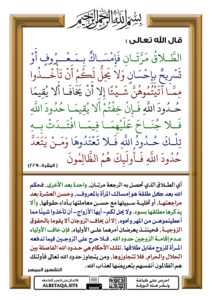 بسم الله الرحمن الرحيم
قال الله تعالى :
الطَّلَاقُ مَرَّتَانِ فَإِمْسَاكٌ بِمَعْرُوفٍ أَوْ
تَسْرِيحٌ بِإِحْسَانٍ وَلَا يَحِلُّ لَكُمْ أَنْ تَأْخُذُوا
مِمَّا آتَيْتُمُوهُنَّ شَيْئًا إِلَّا أَنْ يَخَافَا أَلَّا يُقِيمَا
حُدُودَ اللَّهِ فَإِنْ خِفْتُمْ أَلَّا يُقِيمَا حُدُودَ اللَّهِ
فَلَا جُنَاحَ عَلَيْهِمَا فِيمَا افْتَدَتْ بِهِ
تِلْكَ حُدُودُ اللَّهِ فَلَا تَعْتَدُوهَا وَمَنْ يَتَعَدَّ
حُدُودَ اللَّهِ فَأُولَئِكَ هُمُ الظَّالِمُونَ
(البقرة : ٢٢٩)
أي الطلاق الذي تحصل به الرجعة مرتان، واحدة بعد الأخرى، فحكم
الله بعد كل طلقة هو إمساك المرأة بالمعروف، وحسن العشرة بعد
مراجعتها، أو تخلية سبيلها مع حسن معاملتها بأداء حقوقها، وألا
يذكرها مطلقها بسوء. ولا يحل لكم- أيها الأزواج- أن تأخذوا شيئا مما
أعطيتموهن من المهر ونحوه، إلا أن يخاف الزوجان ألا يقوما بالحقوق
الزوجية، فحينئذ يعرضان أمرهما على الأولياء، فإن خاف الأولياء
عدم إقامة الزوجين حدود الله، فلا حرج على الزوجين فيما تدفعه
المرأة للزوج مقابل طلاقها. تلك الأحكام هي حدود الله الفاصلة بين
الحلال والحرام، فلا تتجاوزوها، ومن يتجاوز حدود الله تعالى فأولئك
هم الظالمون أنفسهم بتعريضها لعذاب الله .
التفسير الميسر
ALBETAQA.SITE